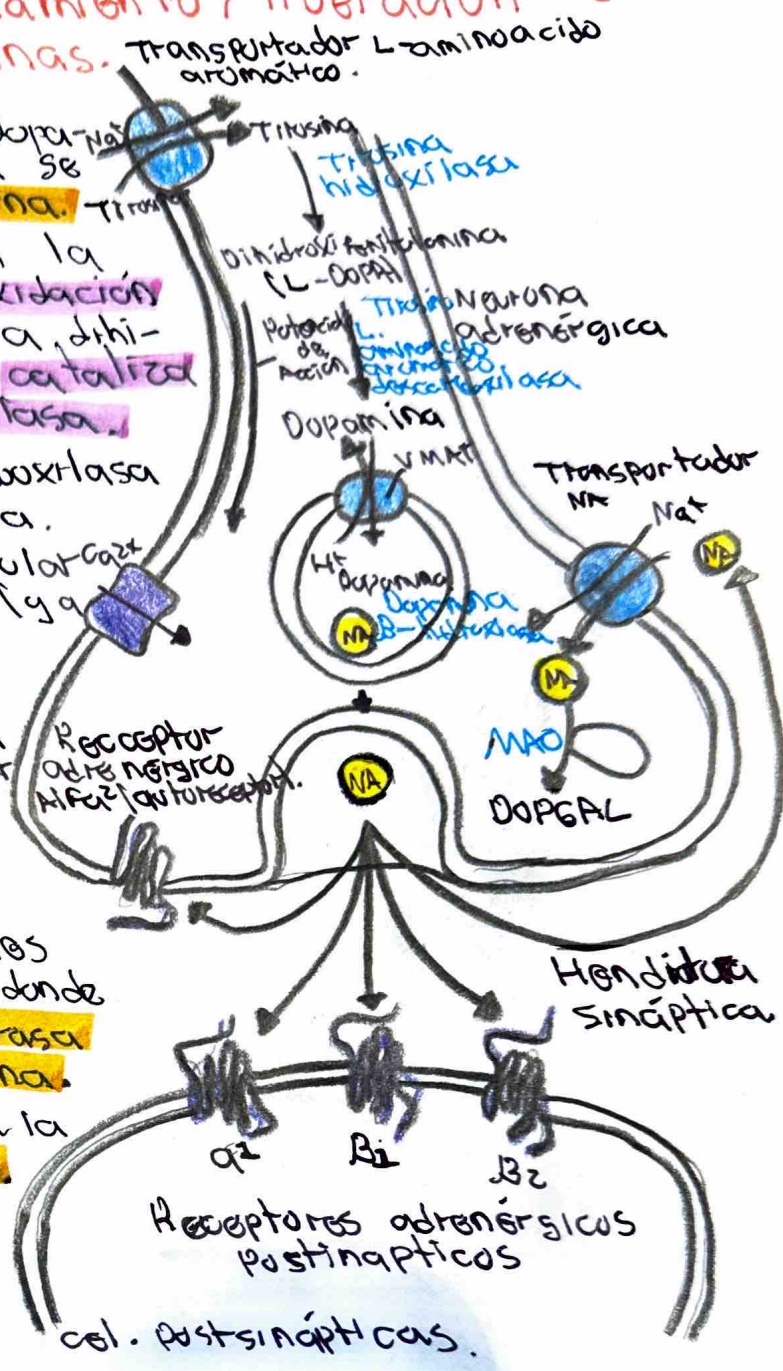 amiento, liberación
nas.
Transportador L-aminoacido
aromático.
dopa-
se
na.
la
xidación
a dihi-
cataliza
lasa.
boxilasa
a.
ular
y a
Na+
Tirosina
Tirosina
Tirosina
hidroxilasa
Dihidroxifenilalanina
(L-DOPA)
Potencial
de
Acción
L.
aminoacido
aromático
descarboxilasa
Neurona
adrenérgica
Dopamina
VMAT
Ca2+
H+
Dopamina
NA
Dopamina
B-hidroxilasa
Transportador
NA
Na+
NA
NA
MAO
DOPGAL
Receptor
adrenérgico
Alfa2 (autoreceptor).
NA
os
donde
rasa
na.
la
Hendidura
sináptica
α1
B1
B2
Receptores adrenérgicos
postinapticos
cel. postsinápticas.